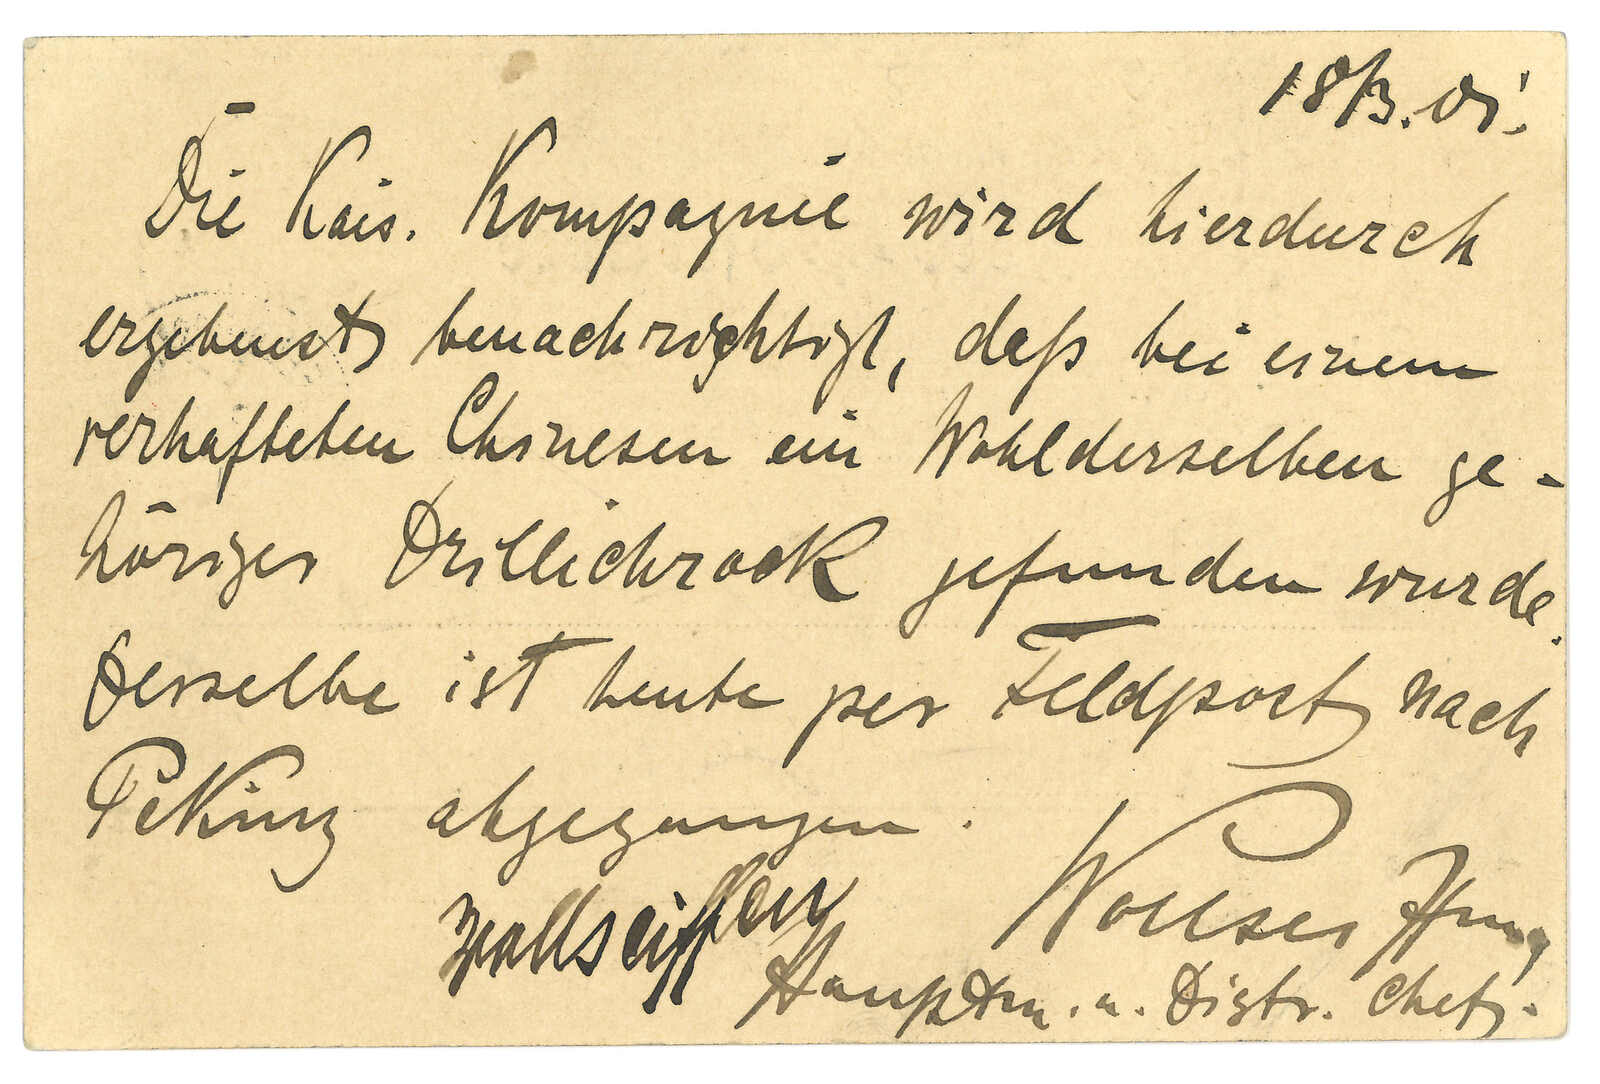 18/3. 01.
Die Kais. Kompagnie wird hierdurch
ergebenst benachrichtigt, daß bei einem
verhafteten Chinesen ein Wohlderselben ge-
höriger Drillichrock gefunden wurde.
Derselbe ist heute per Feldpost nach
Peking abgegangen.
Wollseiffen
Hauptm. u. Distr. Chef.